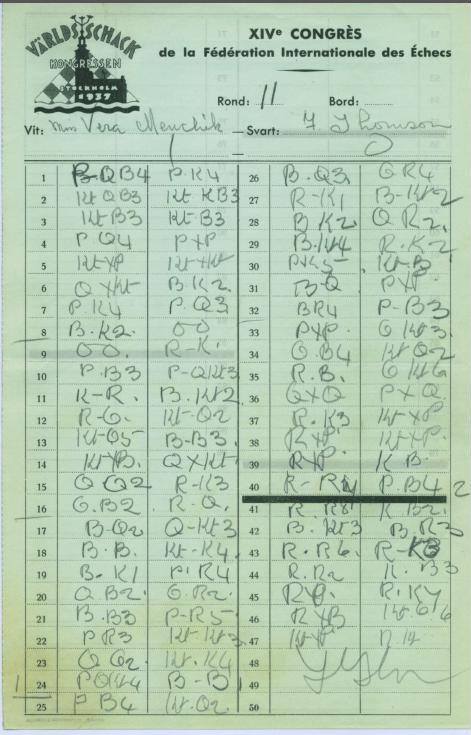 VÄRLDSSCHACK
KONGRESSEN
STOCKHOLM
1937
XIVe CONGRÈS
de la Fédération Internationale des Échecs
Rond: 11 Bord:
Vit: Miss Vera Menchik Svart: F Thomson
1 0
1 P-QB4 P.K4
2 Kt QB3 Kt KB3
3 Kt-B3 Kt-B3
4 P Q4 PXP
5 KtXP KtXKt
6 QXKt B.K2.
7 P.K4 P.Q3
8 B.K2. OO
9 OO. R-K.
10 P.B3 P-QKt3
11 K-R. B.Kt2
12 R-Q. Kt-Q2
13 Kt-Q5 B-B3.
14 KtXB. QXKt
15 Q Q2 R-K3
16 Q.B2 R.Q.
17 B-Q2 Q-Kt3
18 B.B. Kt-K4
19 B.K1 P.R4
20 Q B2. Q.R2.
21 B.B3 P-R5
22 P R3 Kt-Kt3
23 Q Q2. Kt.K4
24 P QKt4 B-B
25 P B4 Kt.Q2.
26 B.Q3. Q R4
27 R-K1 B-Kt2
28 B K2 Q R2.
29 B.Kt4 R.K2
30 PXK5 Kt-B
31 B-Q PXP
32 B R4 P-B3
33 PXP Q Kt3.
34 Q.B4 Kt Q2
35 R.B. Q Kt6
36 QXQ PXQ
37 R.K3 KtXP
38 RXP KtXP.
39 RXP K B
40 R-R4 P.B4
41 R R8 K B2.
42 B.Kt3 B.R3
43 R.R6. R-K3
44 R.R2 K.B3
45 RXB. R.K7
46 RXB
47 KtXP
48
49
50